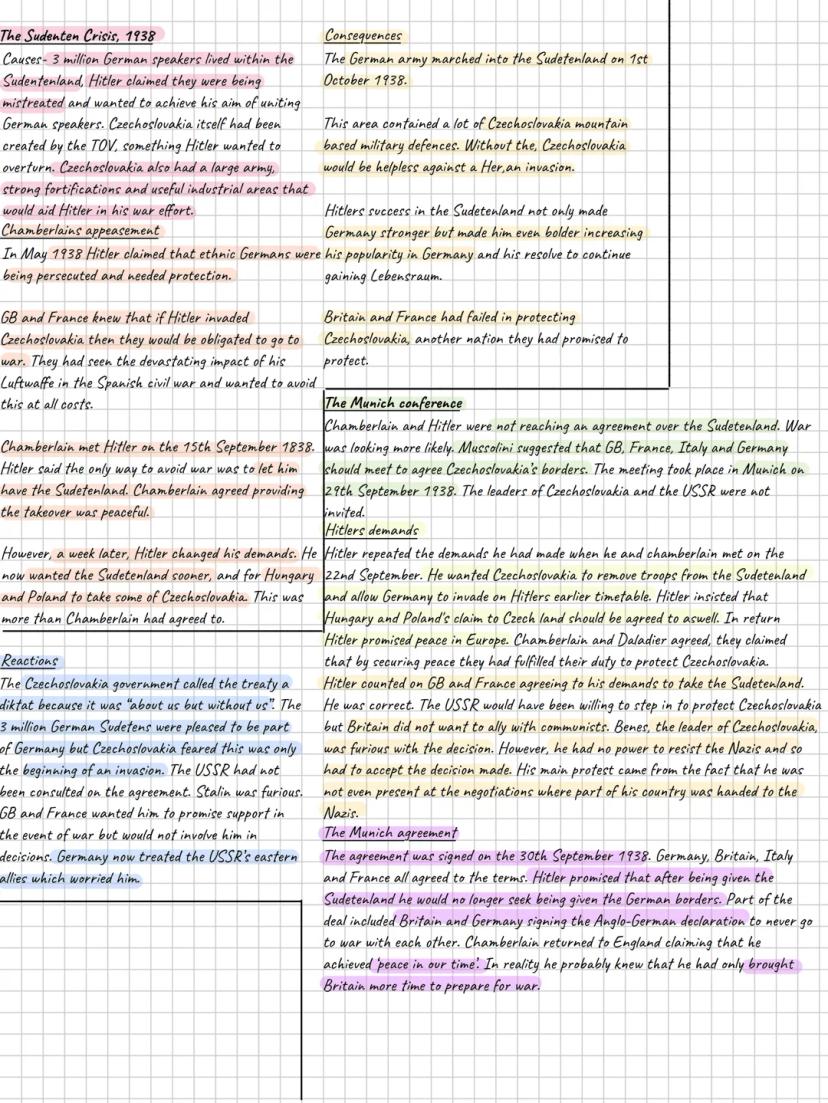 The Sudenten Crisis, 1938
Causes- 3 million German speakers lived within the
Sudentenland, Hitler claimed they were being
mistreated and wanted to achieve his aim of uniting
German speakers. Czechoslovakia itself had been
created by the TOV, something Hitler wanted to
overturn. Czechoslovakia also had a large army,
strong fortifications and useful industrial areas that
would aid Hitler in his war effort.
Chamberlains appeasement
In May 1938 Hitler claimed that ethnic Germans were
being persecuted and needed protection.
GB and France knew that if Hitler invaded
Czechoslovakia then they would be obligated to go to
war. They had seen the devastating impact of his
Luftwaffe in the Spanish civil war and wanted to avoid
this at all costs.
Chamberlain met Hitler on the 15th September 1838.
Hitler said the only way to avoid war was to let him
have the Sudetenland. Chamberlain agreed providing
the takeover was peaceful.
However, a week later, Hitler changed his demands. He
now wanted the Sudetenland sooner, and for Hungary
and Poland to take some of Czechoslovakia. This was
more than Chamberlain had agreed to.
Reactions
The Czechoslovakia government called the treaty a
diktat because it was “about us but without us”. The
3 million German Sudetens were pleased to be part
of Germany but Czechoslovakia feared this was only
the beginning of an invasion. The USSR had not
been consulted on the agreement. Stalin was furious.
GB and France wanted him to promise support in
the event of war but would not involve him in
decisions. Germany now treated the USSR's eastern
allies which worried him.
Consequences
The German army marched into the Sudetenland on 1st
October 1938.
This area contained a lot of Czechoslovakia mountain
based military defences. Without the, Czechoslovakia
would be helpless against a Her,an invasion.
Hitlers success in the Sudetenland not only made
Germany stronger but made him even bolder increasing
his popularity in Germany and his resolve to continue
gaining Lebensraum.
Britain and France had failed in protecting
Czechoslovakia, another nation they had promised to
protect.
The Munich conference
Chamberlain and Hitler were not reaching an agreement over the Sudetenland. War
was looking more likely. Mussolini suggested that GB, France, Italy and Germany
should meet to agree Czechoslovakia's borders. The meeting took place in Munich on
29th September 1938. The leaders of Czechoslovakia and the USSR were not
invited.
Hitlers demands
Hitler repeated the demands he had made when he and chamberlain met on the
22nd September. He wanted Czechoslovakia to remove troops from the Sudetenland
and allow Germany to invade on Hitlers earlier timetable. Hitler insisted that
Hungary and Poland's claim to Czech land should be agreed to aswell. In return
Hitler promised peace in Europe. Chamberlain and Daladier agreed, they claimed
that by securing peace they had fulfilled their duty to protect Czechoslovakia.
Hitler counted on GB and France agreeing to his demands to take the Sudetenland.
He was correct. The USSR would have been willing to step in to protect Czechoslovakia
but Britain did not want to ally with communists. Benes, the leader of Czechoslovakia,
was furious with the decision. However, he had no power to resist the Nazis and so
had to accept the decision made. His main protest came from the fact that he was
not even present at the negotiations where part of his country was handed to the
Nazis.
The Munich agreement
The agreement was signed on the 30th September 1938. Germany, Britain, Italy
and France all agreed to the terms. Hitler promised that after being given the
Sudetenland he would no longer seek being given the German borders. Part of the
deal included Britain and Germany signing the Anglo-German declaration to never go
to war with each other. Chamberlain returned to England claiming that he
achieved 'peace in our time'. In reality he probably knew that he had only brought
Britain more time to prepare for war.